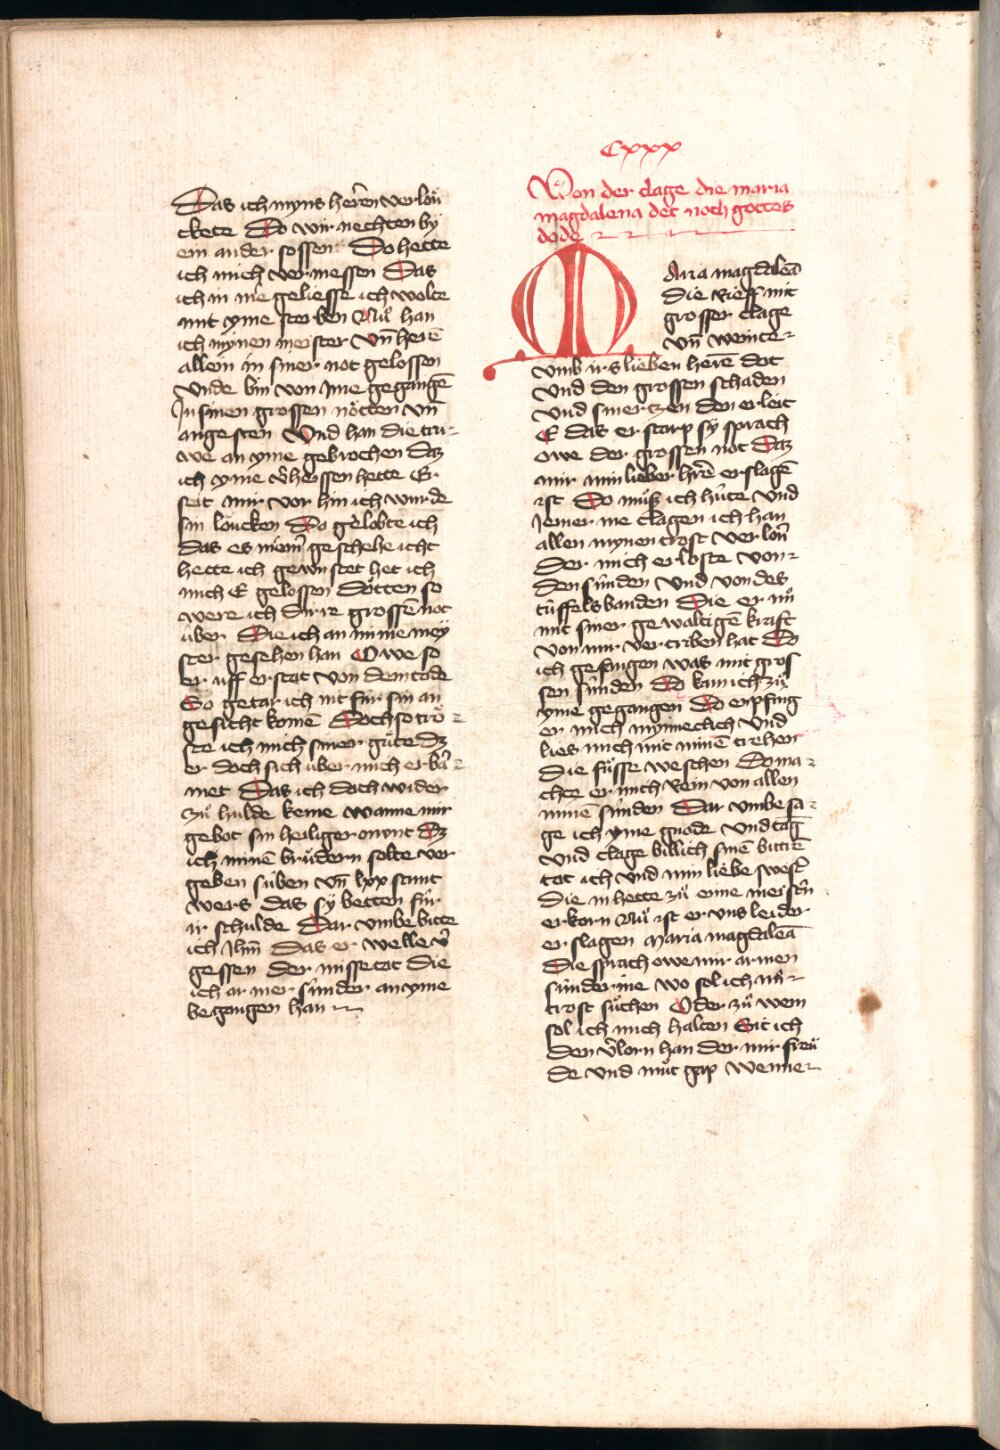 Das ich myns herēn verloͮ
ckete Do wir nechten by
ein ander sossen Do hette
ich mich vermessen Das
ich in nie geliesse ich wolte
mit yme sterben Nuͦ han
ich mynen meister vn̄ herē
allein in siner not gelossen
Vnde bin von Ime gegangē
In sinen grossen noͤtten vn̄
angesten Vnd han die tru
we an yme gebrochen daz
ich yme v̄heissen hette Er
seit mir vor hin ich wurde
sin loͮcken Do gelobte ich
das es niem̄ geschehe icht
hette ich gewustet het ich
mich E gelossen doͤtten so
were ich dirre grossē not
uͤber Die ich an mime mey
ster gesehen han Owe so
er uff erstat von dem tode
So getar ich nit fuͤr sin an
gesicht komē Doch so troͤ
ste ich mich siner guͤte dz
er doch sich uͤber mich erbā
met Das ich doch wider
zuͦ hulde keme wanne mir
gebot sin heiliger munt dz
ich minē bruͤdern solte ver
geben suͤben vn̄ lxx stunt
wers das sy betten fuͤr
ir schulde Dar vmbe bitte
ich Ihm̄ Das er welle v̄
gessen der missetat die
ich armer suͤnder an yme
begangen han
Cxxx
Von der clage die maria
magdalena det noch gottes
dode
Maria magdaleā
die rieff mit
grosser clage
vn̄ weinte
vmb irs lieben herē dot
vnd den grossen schaden
vnd smerczen den er leit
E das er starp sy sprach
owe der grossen not Daz
mir min lieber hrē erslagē
ist Do muͦß ich huͤte vnd
Iemer me clagen ich han
allen mynen trost verlorn̄
der mich erloste von
den suͤnden vnd von des
tuͤffels banden Die er nuͦ
mit siner gewaltigē kraft
von mir vertriben hat Do
ich gefangen was mit gros
sen suͤnden Do kam ich zuͦ
yme gegangen Do enpfing
er mich mynneclich vnd
lies mich mit minē trehen
die fuͤsse weschen Do ma
chte er mich rein von allen
minē suͤnden Dar vmbe sa
ge ich yme gnode vnd tag
vnd clage billich sinē bittrē
tot ich vnd min liebe swest̄
die in hette zuͦ eime meist̄n
erkorn Nuͦ ist er vns leider
erslagen Maria magdaleā
Die sprach owe mir armen
suͤnderine wo sol ich nuͦ
trost suͦchen Oder zuͦ wem
sol ich mich halten Sit ich
den v̄lorn han der mir freuͦ
de vnd muͦt gap Wenne